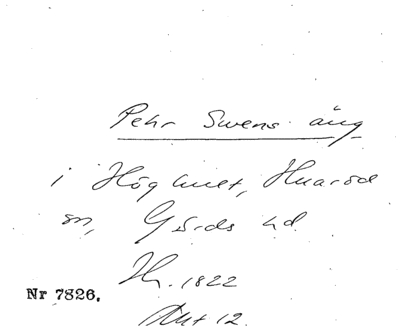 Pehr Swens äng
i Höghult, Huaröd
sn, Gärds hd.
H. 1822
Akt 12.
Nr 7826.